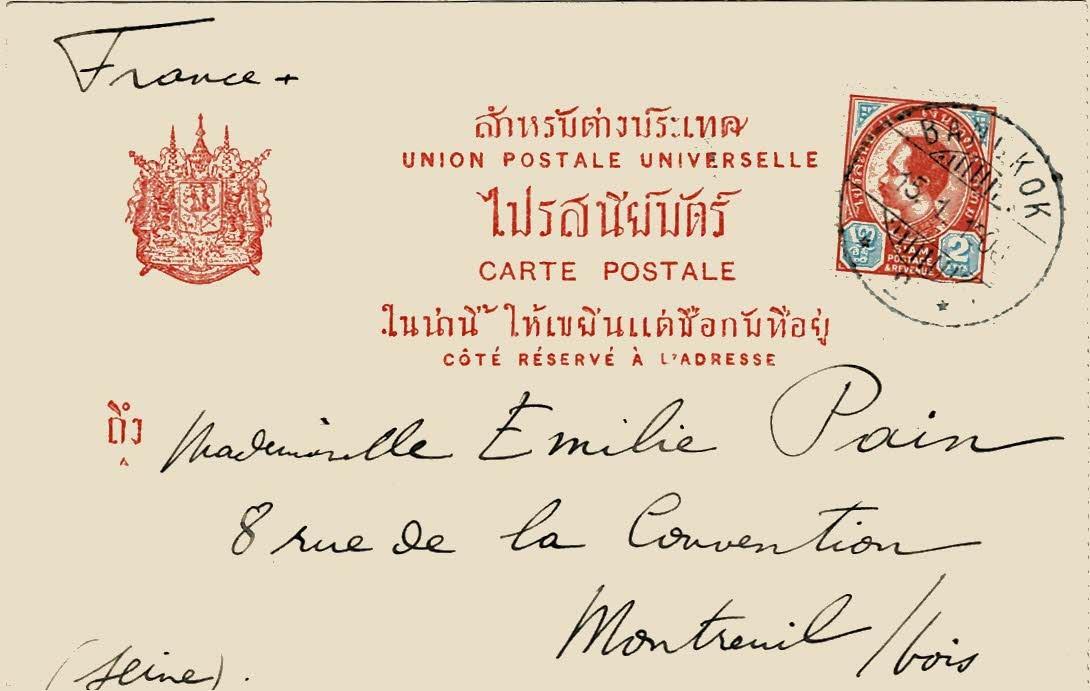 France +
สำหรับต่างประเทศ
UNION POSTALE UNIVERSELLE
ไปรสนียบัตร์
CARTE POSTALE
ในน่านี้ ให้เขียนแต่ชื่อกับที่อยู่
CÔTÉ RÉSERVÉ À L'ADRESSE
BANGKOK
2
POSTAGE
& REVENUE
ถึง
Mademoiselle Emilie Pain
8 rue de la Convention
Montreuil / bois
(Seine).